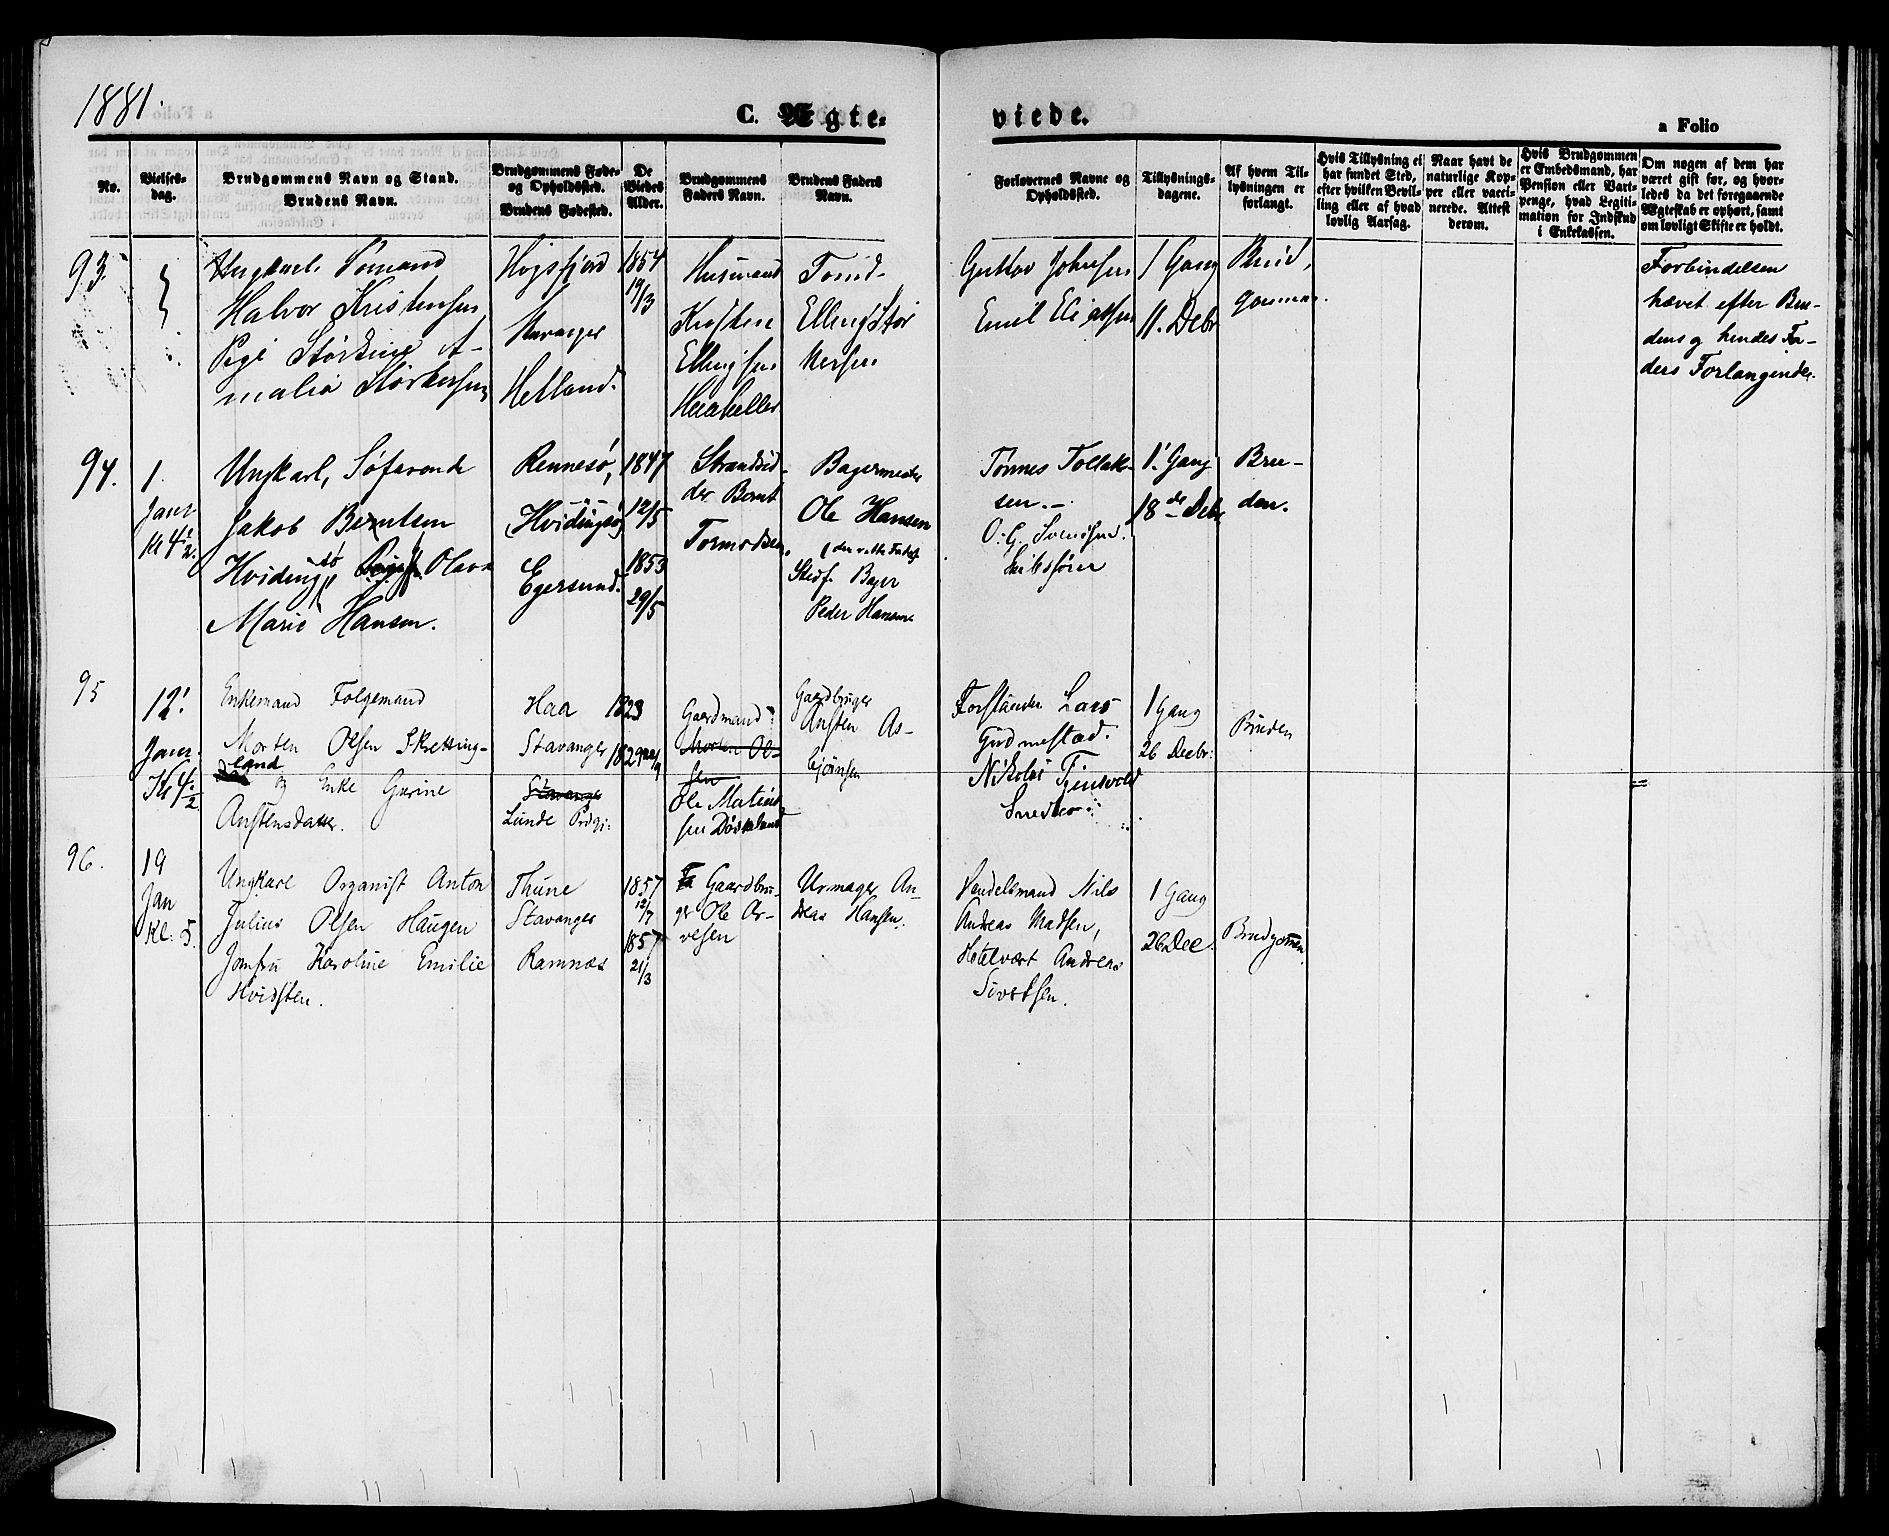 1881.
C. Ægte-
viede.
a Folio
No.
Vielses-
dag.
Brudgommens Navn og Stand.
Brudens Navn.
Brudgommens Føde-
og Opholdssted.
Brudens Fødested.
De
Viedes
Alder.
Brudgommens
Faders Navn.
Brudens Faders
Navn.
Forlovernes Navne og
Opholdssted.
Tillysnings-
dagene.
Af hvem Til-
lysningen er
forlangt.
Hvis Tillysning ei
har fundet Sted,
efter hvilken Bevil-
ling eller af hvad
lovlig Aarsag.
Naar havt de
naturlige Kop-
per eller vacci-
nerede. Attest
derom.
Hvis Brudgommen
er Embedsmand, har
Pension eller Vart-
penge, hvad Legiti-
mation for Indskud
i Enkekassen.
Om nogen af dem har
været gift før, og hvor-
ledes da det foregaaende
Ægteskab er ophørt, samt
om lovligt Skifte er holdt.
93
Ungkarl. Sømand
Halvor Kristensen,
Størksine A-
malia Størkersen
Høgsfjord
Stavanger
Helland.
1854
19/3
Husmand
Kristen
Ellingsen
Tomd-
Elling Stør
kersen
Gustav Johnsen
Emil Eliassen
1 Gang
11. Debr
Brud,
gommen.
Forbindelsen
hævet efter Bru-
dens og hendes Fa-
ders Forlangende.
94.
1.
Janr
Kl 4 1/2.
Ungkarl, Søfarende
Jakob Berntsen
Hvidingsø Olava
Marie Hansen.
Rennesø,
(Hvidingsø)
Egersund.
1847
12/5
1853
29/5
Strandsid-
der Bernt
Tormodsen.
Bagermester
Ole Hansen
(den rette Fader
Stedf. Bager
Peder Hansen
Tønnes Tollak-
sen. -
O. G. Svendsen.
Skibsfører
1' Gang
18de Debr
Bru-
den.
95
12'
Janr.
Kl 4 1/2
Enkemand Følgemand
Morten Olsen Skretting-
land
og Enke Gurine
Anstensdatter.
Haa
Stavanger
Stavange
Lunde Prdgj:
1823
1829
Gaardmand:
Morten Ol-
sen
Ole Matias
sen
Gaardbruger
Ansten As-
bjørnsen
Forstander Lars
Gudmestad.
Nikolai Tjensvold
Snedker
1 Gang
26 Decbr:
Bruden
=
96.
19
Jan
Kl: 5.
Ungkarl Organist Anton
Julius Olsen Haugen
Jomfru Karoline Emilie
Hvidsten.
Thune
Stavanger
Ramnæs
1857
12/7
1857
21/3
Fa Gaardbru-
ger Ole Ar-
vesen
Urmager An-
dreas Hansen.
Handelsmand Nils
Andreas Madsen,
Hotelvært Andreas
Sivertsen.
1 Gang
26 Dec.
Brudgommen